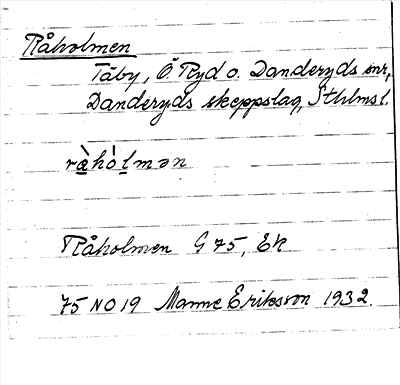 Råholmen
Täby, Ö Ryd o. Danderyds snr,
Danderyds skeppslag, Sthlmsl.
ràhòlmən
Råholmen G 75, Ek
75 NO 19 Manne Eriksson 1932.